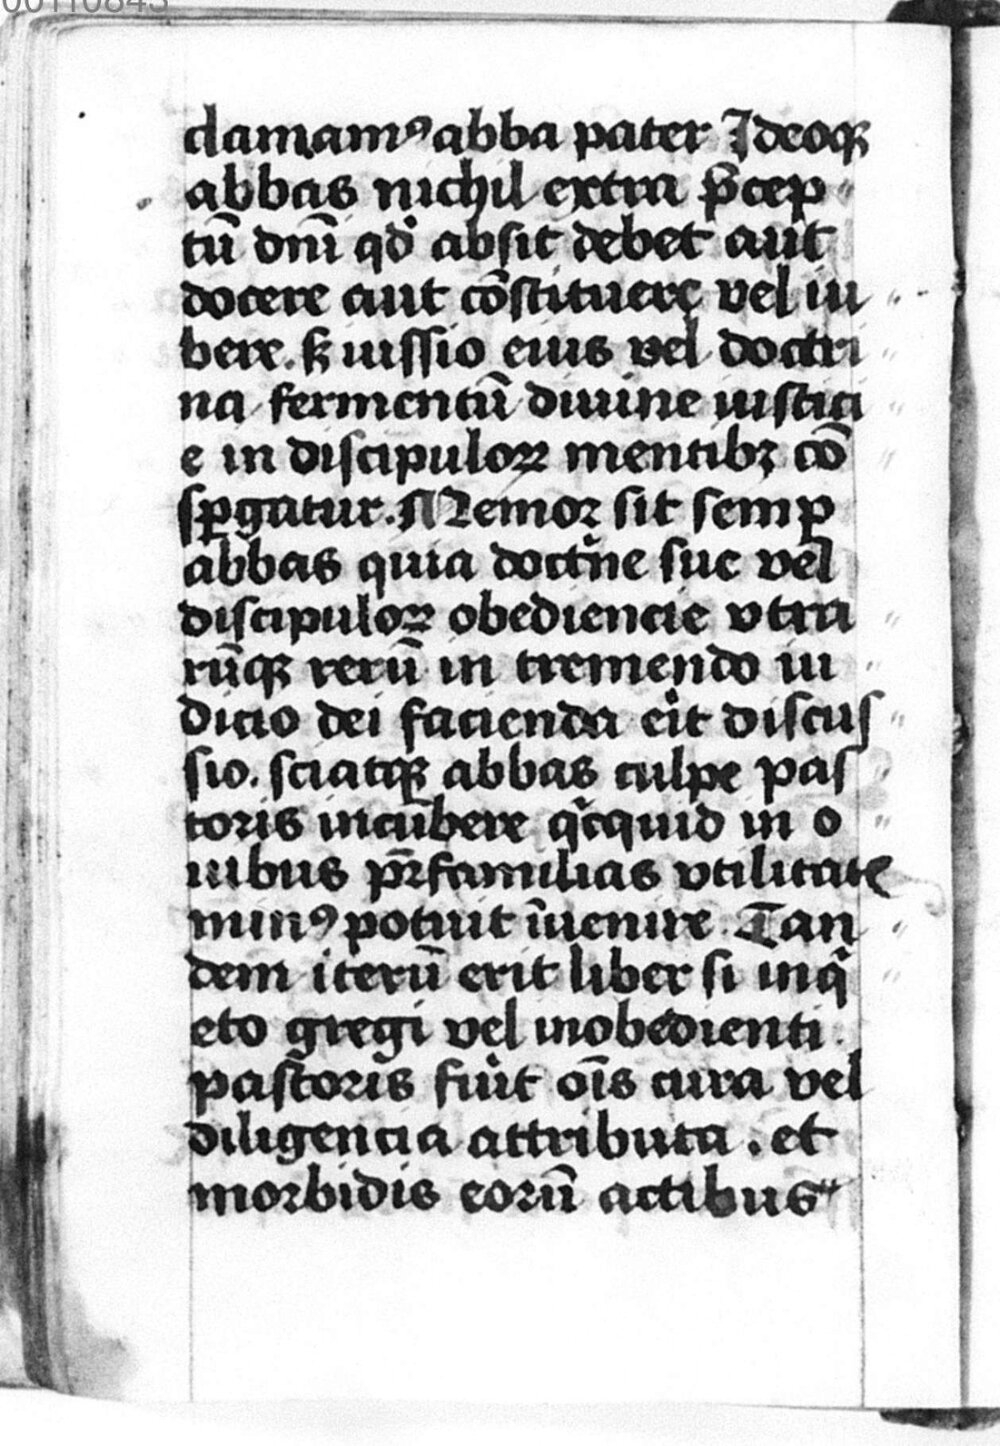 clamamꝰ abba pater Ideoqꝫ
abbas nichil extra p̄cep
tū dnī qd̓ absit debet aut
docere aut cōstituere vel iu
bere. sꝫ iussio eius vel doctri
na fermentū diuine iustici
e in discipuloꝝ mentibꝫ cō
sꝑgatur. Memor sit semꝑ
abbas quia doctͥne sue vel
discipuloꝝ obediencie vtra
rūqꝫ rerū in tremendo iu
dicio dei facienda eͥt discus
sio. sciatqꝫ abbas culpe pas
toris incūbere qͥcquid in o
uibus pr̄familias vtilitatē
minꝰ potuit īuenire. Tan
dem iterū erit liber si inqͥ
eto gregi vel inobedienti
pastoris fuͥit oīs cura vel
diligencia attributa . et
morbidis eorū actibus